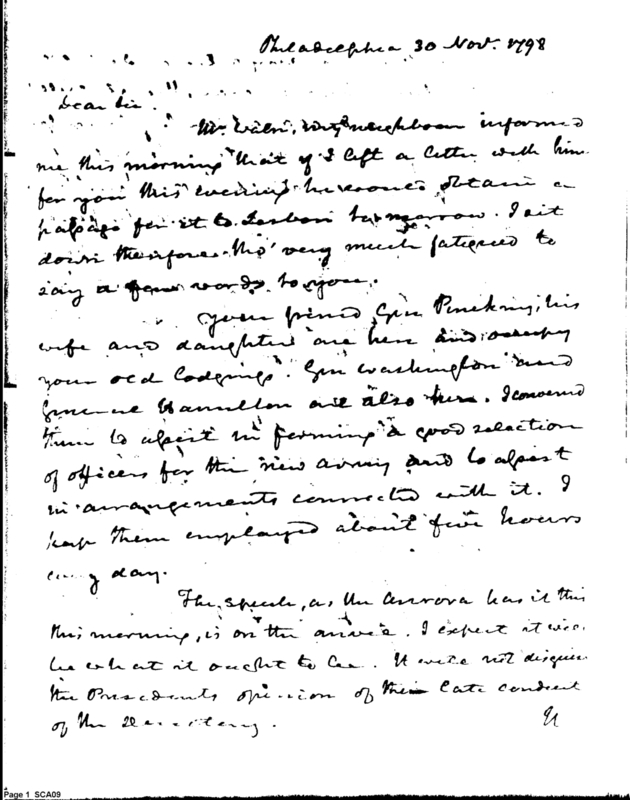 Philadelphia 30 Nov. 1798
Dear Sir.
Mr. my neighbour informed
me this morning that if I left a letter with him
for you this evening he would obtain a
passage for it to Lisbon tomorrow. I sit
down therefore tho' very much fatigued to
say a few words to you.
Your friend Gen Pinckney, his
wife and daughter are here and occupy
your old lodgings. Gen Washington and
General Hamilton are also here. I convened
them to assist in forming a good selection
of officers for the new army and to assist
in arrangements connected with it. I
keep them employed about five hours
every day.
The speech, as the Aurora has it this
this morning, is on the anvil. I expect it will
be what it ought to be. It will not disguise
the Presidents opinion of the late conduct
of the
Page 1 SCA09